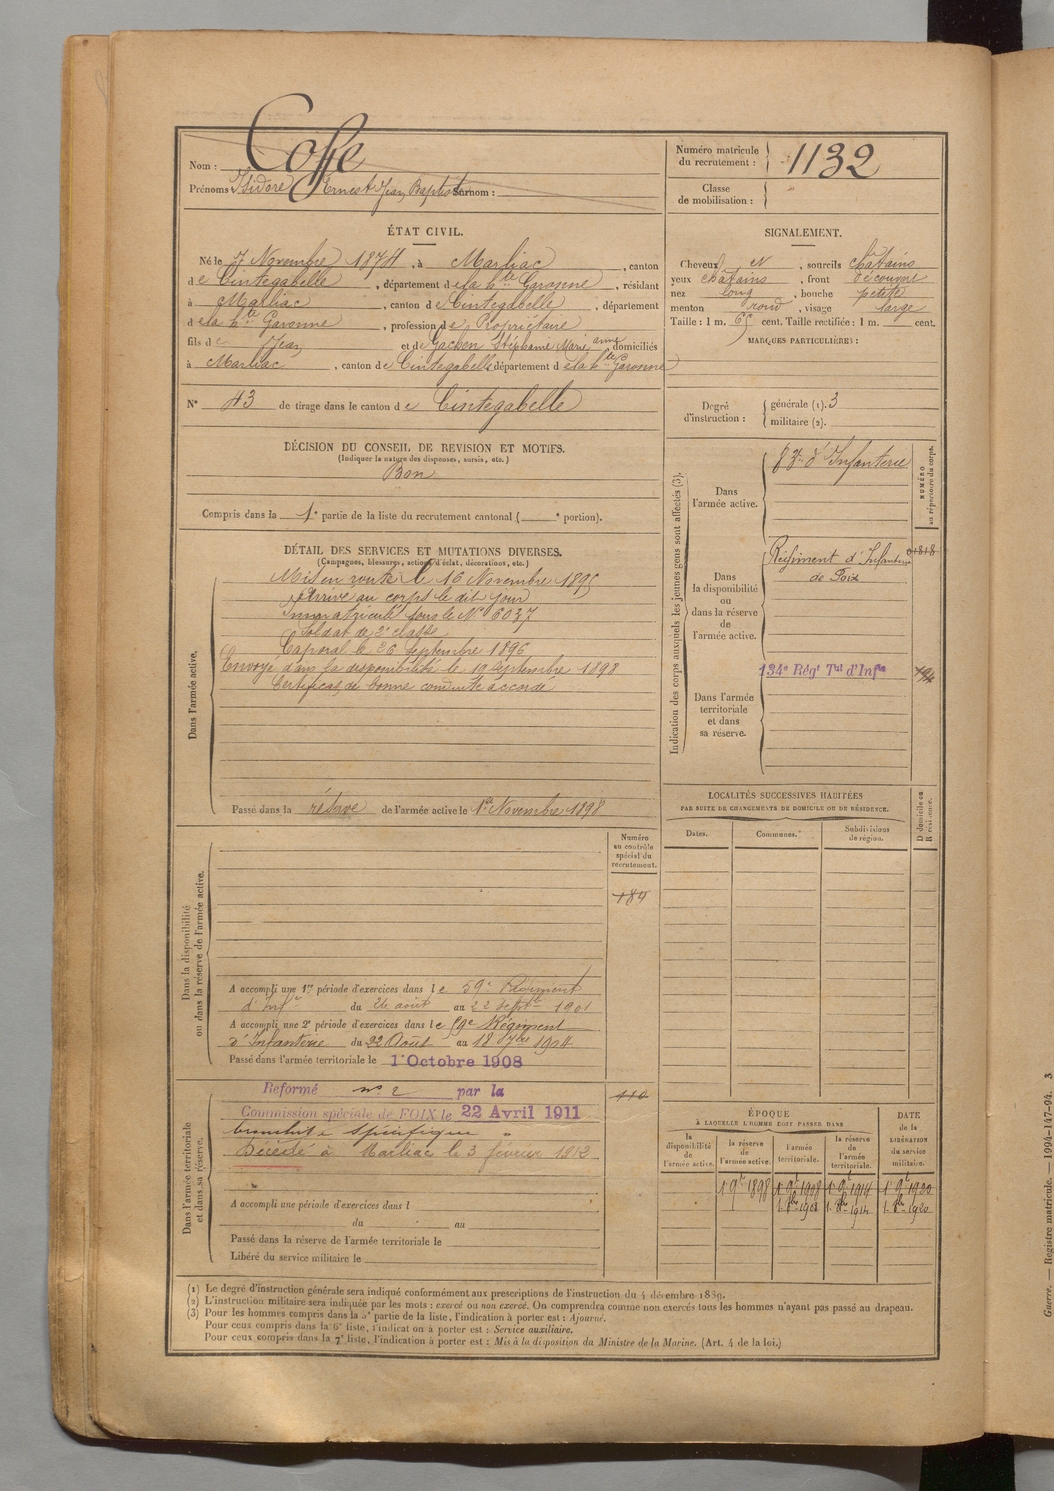 Nom : Coffe
Prénoms Isidore Ernest Jean Baptiste Surnom :
Numéro matricule du recrutement : 1132
Classe de mobilisation :
ÉTAT CIVIL.
Né le 7 Novembre 1874, à Marliac, canton
de Cintegabelle, département de la hte Garonne, résidant
à Marliac, canton de Cintegabelle, département
de la hte Garonne, profession de Propriétaire
fils de Jean et de Stéphanie Marie anne domiciliés
à Marliac, canton de Cintegabelle département de la hte Garonne
N° 43 de tirage dans le canton de Cintegabelle
SIGNALEMENT.
Cheveux N, sourcils châtains
yeux châtains, front découvert
nez long, bouche petite
menton rond, visage large
Taille : 1 m. 65 cent. Taille rectifiée : 1 m. cent.
MARQUES PARTICULIÈRES :
Degré d'instruction : générale (1). 3
militaire (2).
DÉCISION DU CONSEIL DE REVISION ET MOTIFS.
(Indiquer la nature des dispenses, sursis, etc.)
Bon
Compris dans la 1e partie de la liste du recrutement cantonal ( e portion).
DÉTAIL DES SERVICES ET MUTATIONS DIVERSES.
(Campagnes, blessures, actions d'éclat, décorations, etc.)
Dans l'armée active.
Mis en route le 16 Novembre 1895
Arrivé au corps le dit jour
Immatriculé sous le N° 6037
Soldat de 2e classe
Caporal le 26 Septembre 1896
Envoyé dans la disponibilité le 19 Septembre 1898
Certificat de bonne conduite accordé
Passé dans la réserve de l'armée active le 1er Novembre 1898
Indication des corps auxquels les jeunes gens sont affectés (3).
NUMÉRO au répertoire du corps.
Dans l'armée active.
d'Infanterie
Dans la disponibilité ou dans la réserve de l'armée active.
Régiment d'Infanterie
de Foix
Dans l'armée territoriale et dans sa réserve.
134e Régt Tal d'Infie
LOCALITÉS SUCCESSIVES HABITÉES
PAR SUITE DE CHANGEMENTS DE DOMICILE OU DE RÉSIDENCE.
Dates.
Communes.
Subdivisions de région.
D domicile ou R résidence.
Dans la disponibilité ou dans la réserve de l'armée active.
Numéro au contrôle spécial du recrutement.
184
A accompli une 1re période d'exercices dans le 59e Régiment
d'Infie du 26 août au 22 Septbre 1901
A accompli une 2e période d'exercices dans le 59e Régiment
d'Infanterie du 22 Août au 18 7bre 1904
Passé dans l'armée territoriale le 1er Octobre 1908
Dans l'armée territoriale et dans sa réserve.
Reformé n° 2 par la
Commission spéciale de FOIX le 22 Avril 1911
bronchite spécifique
Décédé à Marliac le 3 février 1912
A accompli une période d'exercices dans l
du au
Passé dans la réserve de l'armée territoriale le
Libéré du service militaire le
ÉPOQUE
À LAQUELLE L'HOMME DOIT PASSER DANS
la disponibilité de l'armée active.
la réserve de l'armée active.
l'armée territoriale.
la réserve de l'armée territoriale.
DATE de la LIBÉRATION du service militaire.
(1) Le degré d'instruction générale sera indiqué conformément aux prescriptions de l'instruction du 4 décembre 1889.
(2) L'instruction militaire sera indiquée par les mots : exercé ou non exercé. On comprendra comme non exercés tous les hommes n'ayant pas passé au drapeau.
(3) Pour les hommes compris dans la 5e partie de la liste, l'indication à porter est : Ajourné.
Pour ceux compris dans la 6e liste, l'indication à porter est : Service auxiliaire.
Pour ceux compris dans la 7e liste, l'indication à porter est : Mis à la disposition du Ministre de la Marine. (Art. 4 de la loi.)
Guerre. — Registre matricule. — 1994-147-94. 3